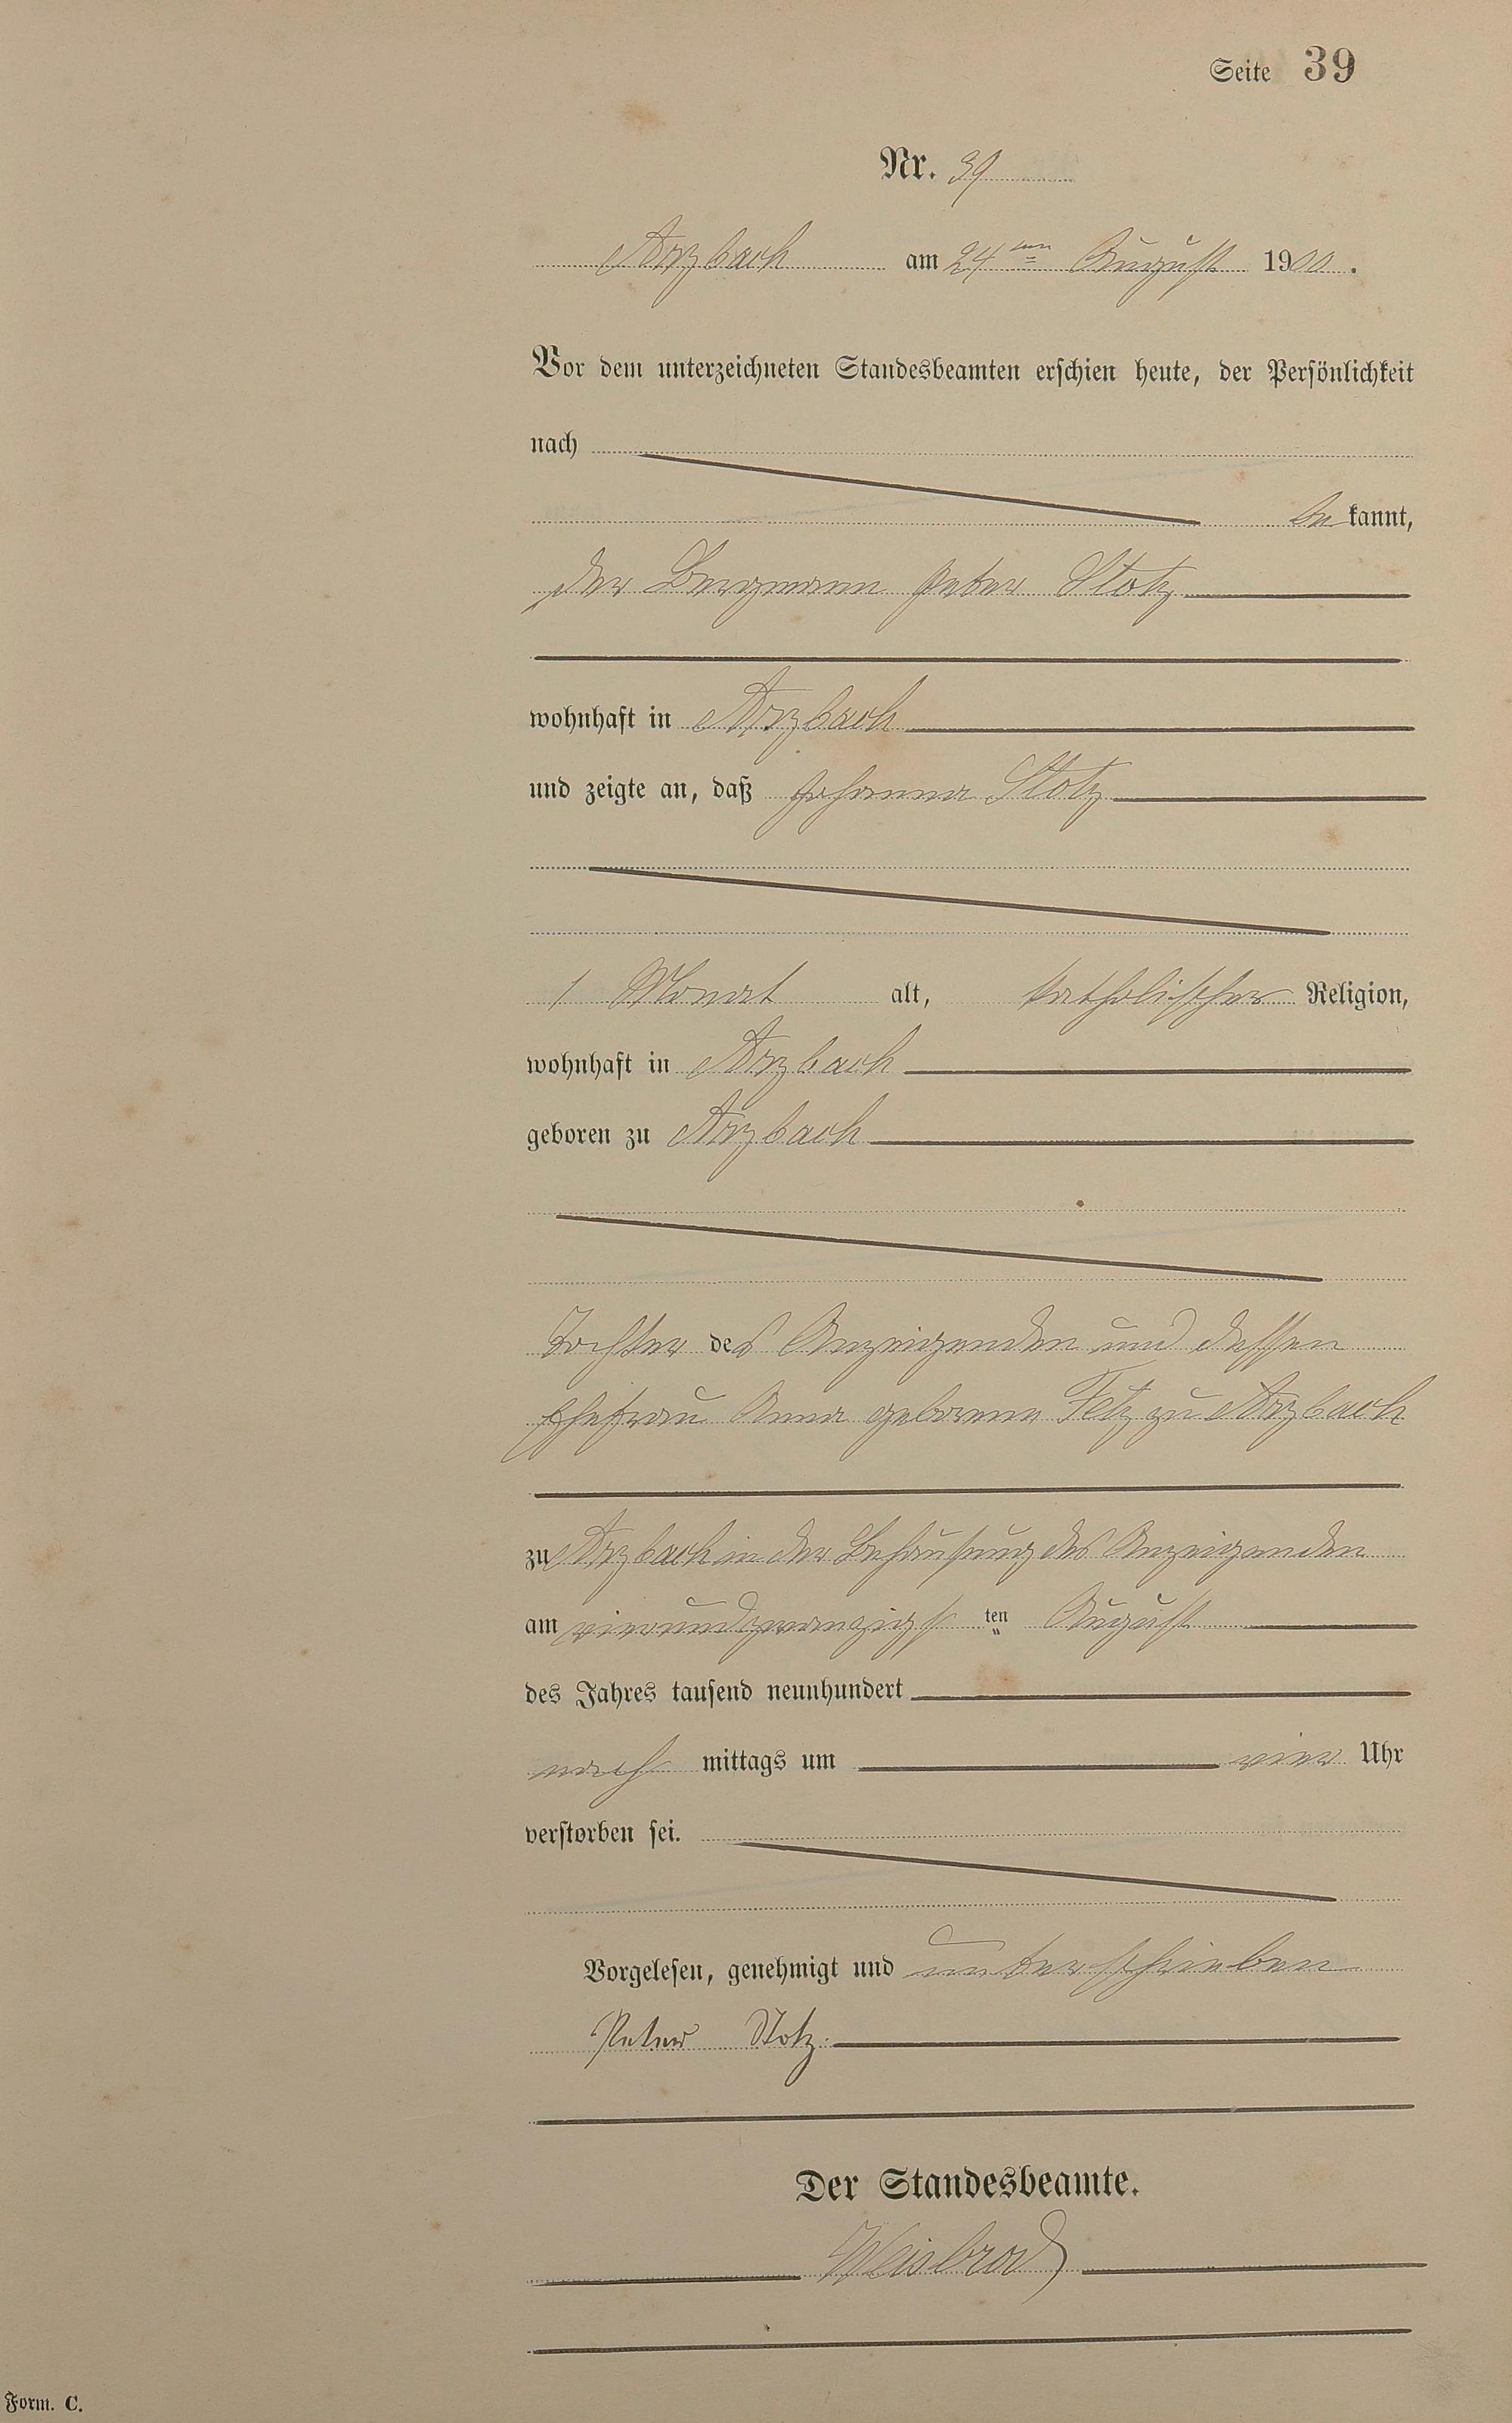 Seite 39
Nr. 39
Arzbach am 24ten August 1900.
Vor dem unterzeichneten Standesbeamten erschien heute, der Persönlichkeit
nach
be kannt,
der Bergmann Peter Stotz
wohnhaft in Arzbach
und zeigte an, daß Johanna Stotz
1 Monat alt, katholischer Religion,
wohnhaft in Arzbach
geboren zu Arzbach
Tochter des Anzeigenden und dessen
Ehefrau Anna geborene Fetz zu Arzbach
zu Arzbach in der Behausung des Anzeigenden
am vierundzwanzigsten August
des Jahres tausend neunhundert
nach mittags um vier Uhr
verstorben sei.
Vorgelesen, genehmigt und unterschrieben
Peter Stotz.
Der Standesbeamte.
Weisbrod
Form. C.